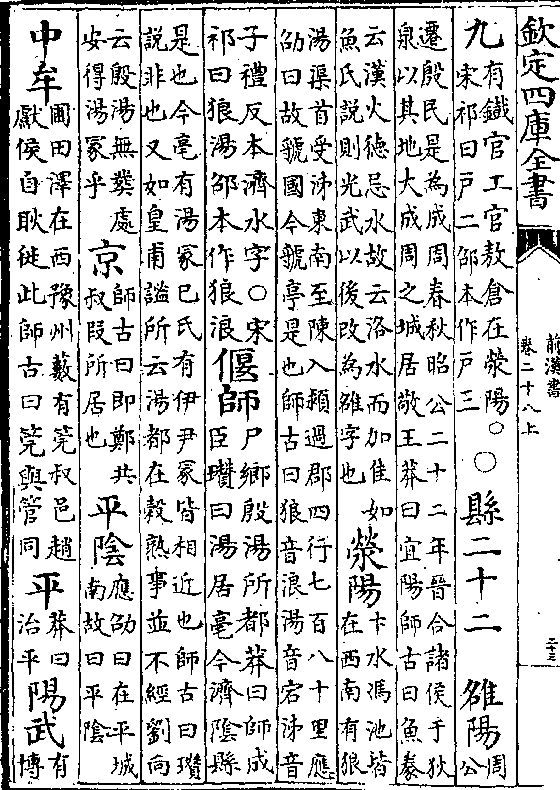 欽定四庫全書
前漢書
卷二十八上
二十三
九
有鐵官工官敖倉在滎陽○
宋祁曰戸二邵本作戸三
○縣二十二
雒陽
周
公
遷殷民是為成周春秋昭公二十二年晉合諸侯于狄
泉以其地大成周之城居敬王莽曰宜陽師古曰魚豢
云漢火徳忌水故云洛水而加隹如
魚氏説則光武以後改為雒字也
滎陽
卞水馮池皆
在西南有狼
湯渠首受泲東南至陳入潁過郡四行七百八十里應
劭曰故虢國今虢亭是也師古曰狼音浪湯音宕泲音
子禮反本濟水字○宋
祁曰狼湯邵本作狼浪
偃師
尸鄉殷湯所都莽曰師成
臣瓚曰湯居亳今濟隂縣
是也今亳有湯冢巳氏有伊尹冢皆相近也師古曰瓚
説非也又如皇甫謐所云湯都在榖熟事並不經劉向
云殷湯無葬處
安得湯冢乎
京
師古曰即鄭共
叔段所居也
平隂
應劭曰在平城
南故曰平隂
中牟
圃田澤在西豫州藪有筦叔邑趙
獻侯自耿徙此師古曰筦與管同
平
莽曰
治平
陽武
有
博